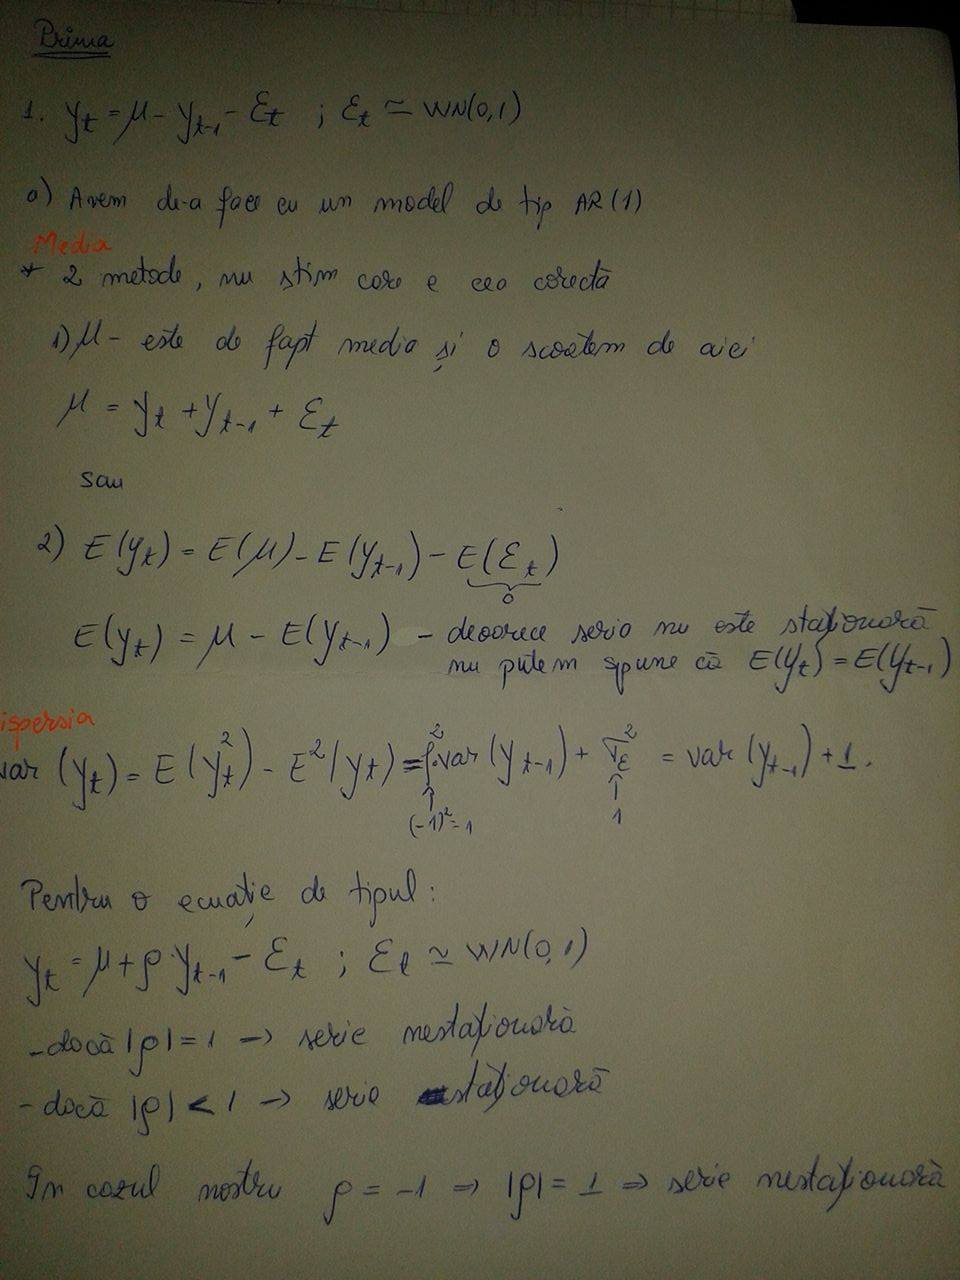 Prima
1. yt = μ - yt-1 - εt ; εt ≃ WN(0,1)
a) Avem de-a face cu un model de tip AR(1)
Media
* 2 metode, nu stim care e cea corectă
1) μ - este de fapt media și o scoatem de aici
μ = yt + yt-1 + εt
sau
2) E(yt) = E(μ) - E(yt-1) - E(εt)
0
E(yt) = μ - E(yt-1) - deoarece seria nu este staționară
nu putem spune că E(yt) = E(yt-1)
ispersia
var (yt) = E(yt²) - E²(yt) = ρ²·var(yt-1) + σε² = var(yt-1) + 1.
↑ ↑
(-1)² = 1 1
Pentru o ecuație de tipul:
yt = μ + ρ·yt-1 - εt ; εt ≃ WN(0,1)
- dacă |ρ| = 1 → serie nestaționară
- dacă |ρ| < 1 → serie staționară
In cazul nostru ρ = -1 ⇒ |ρ| = 1 ⇒ serie nestaționară